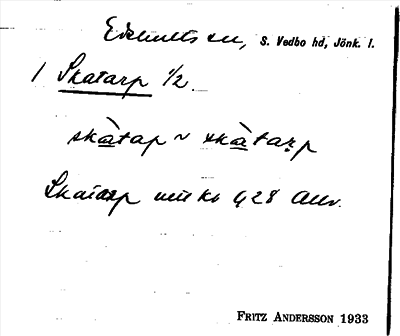 Edshults sn, S. Vedbo hd, Jönk. l.
1 Skatarp 1/2
skàtap ~ skàtarp
Skatarp mtl kr 428 Allv.
FRITZ ANDERSSON 1933